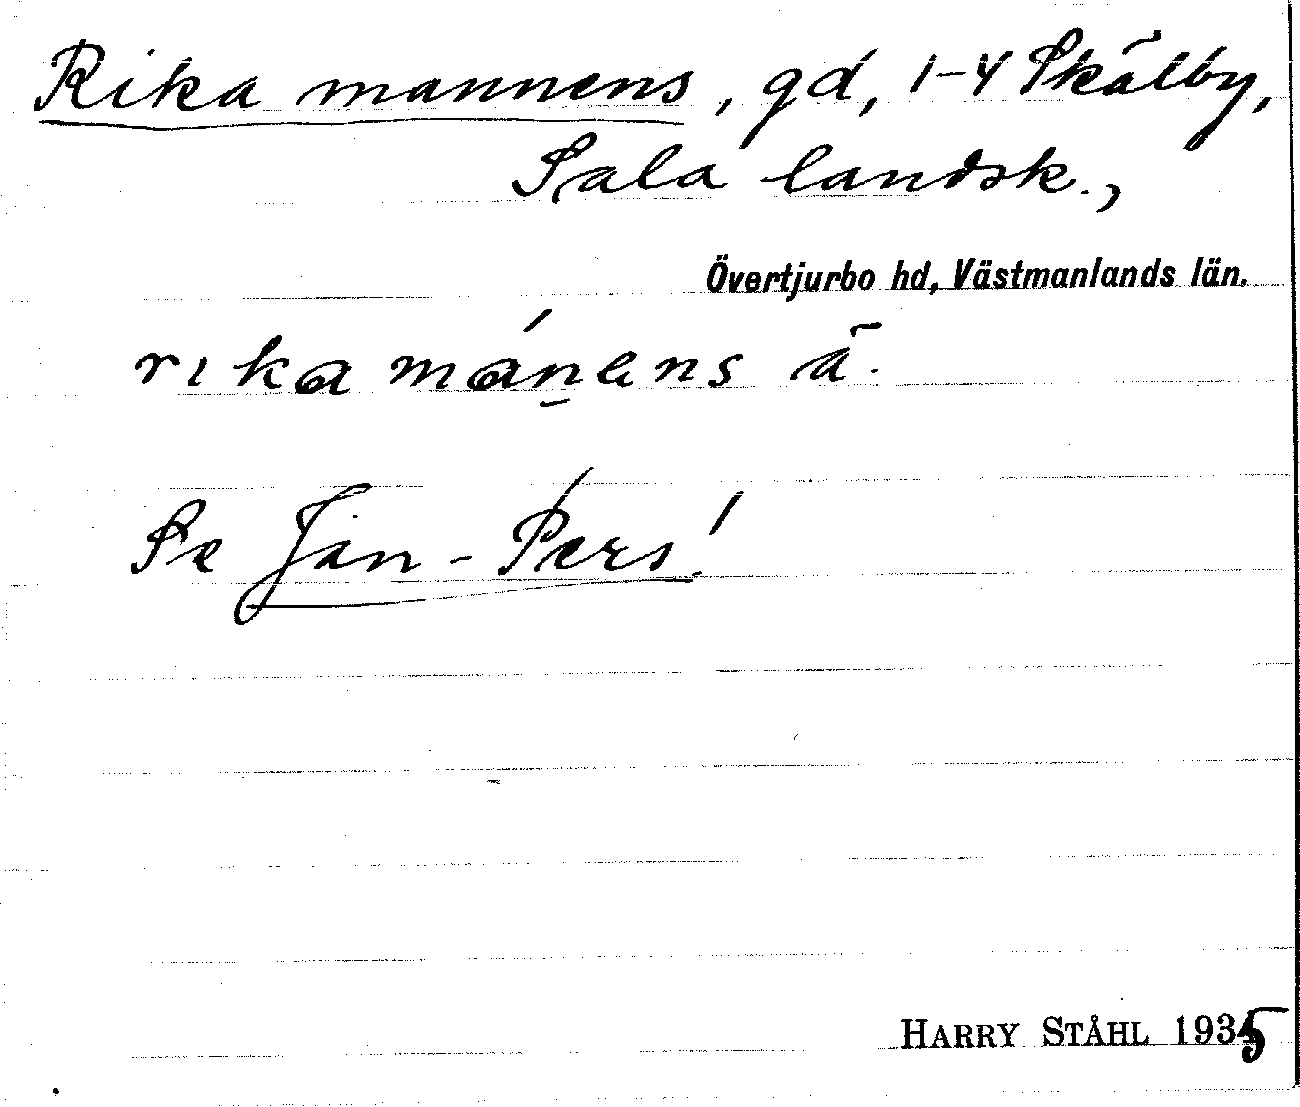 Rika mannens, gd, 1-4 Skälby,
Sala landsk.,
Övertjurbo hd, Västmanlands län.
rika mánens ä.
Se Jan-Pers!
HARRY STÅHL 1935